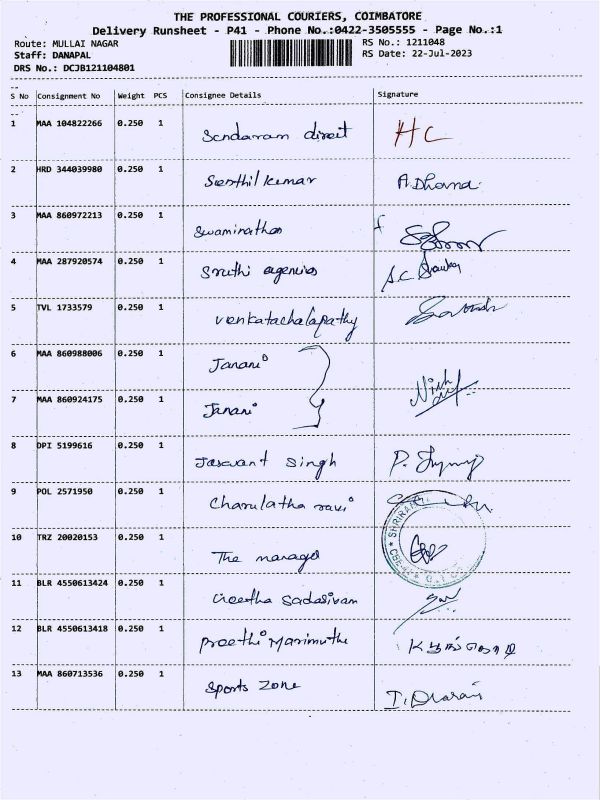 THE PROFESSIONAL COURIERS, COIMBATORE
Delivery Runsheet - P41 - Phone No.:0422-3505555 - Page No.:1
Route: MULLAI NAGAR RS No.: 1211048
Staff: DANAPAL RS Date: 22-Jul-2023
DRS No.: DCJB121104801
S No Consignment No Weight PCS Consignee Details Signature
1 MAA 104822266 0.250 1 Sundaram direct HC
2 HRD 344039980 0.250 1 Senthil kumar A.Dhana
3 MAA 860972213 0.250 1 Swaminathan
4 MAA 287920574 0.250 1 Sruthi agencies
5 TVL 1733579 0.250 1 venkatachalapathy
6 MAA 860988006 0.250 1 Janani
7 MAA 860924175 0.250 1 Janani
8 DPI 5199616 0.250 1 Jaswant Singh
9 POL 2571950 0.250 1 Charulatha ravi
10 TRZ 20020153 0.250 1 The manager
11 BLR 4550613424 0.250 1 Geetha Sadasivam
12 BLR 4550613418 0.250 1 Preethi Marimuthu
13 MAA 860713536 0.250 1 Sports Zone